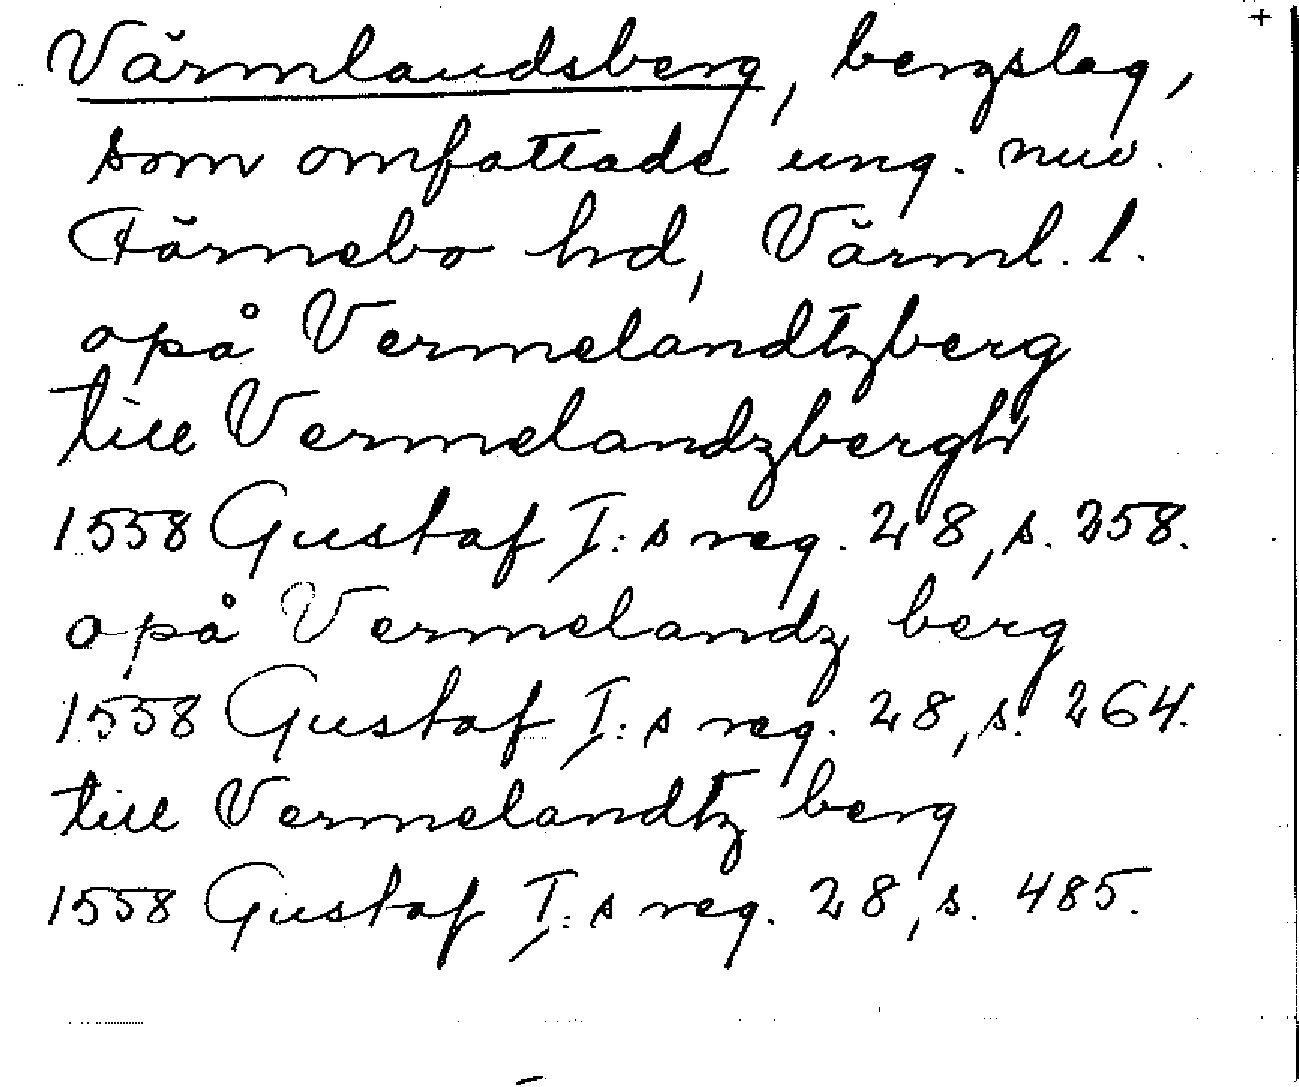 Värmlandsberg, bergslag,
som omfattade ung. nuv.
Färnebo hd, Värml. l.
opå Vermelandtzberg
till Vermelandzbergh
1558 Gustaf I:s reg. 28, s. 258.
opå Vermelandz berg
1558 Gustaf I:s reg. 28, s. 264.
till Vermelandtz berg
1558 Gustaf I:s reg. 28, s. 485.